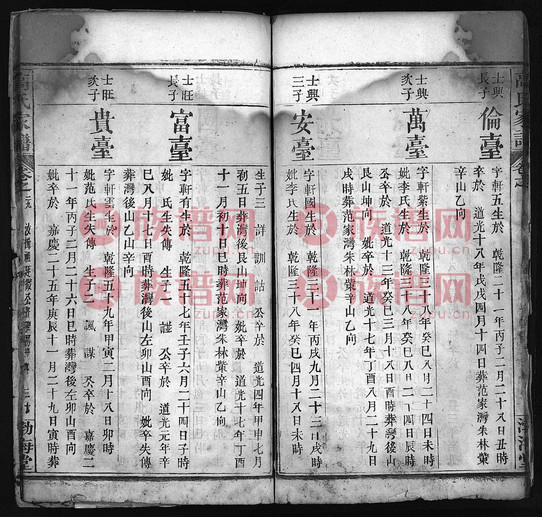 高氏家譜
卷之
渤海堂
士興
長子
倫臺
字軒五生於 乾隆二十一年丙子二月二十八日丑時
卒於 道光十八年戊戌四月十四日葬范家灣朱林蘴
辛山乙向
士興
次子
萬臺
字軒紫生於 乾隆三十八年癸巳八月二十四日未時
妣李氏生於 乾隆三十八年癸巳八月二十四日辰時
公卒於 道光十三年癸巳三月十八日酉時葬灣後山
艮山坤向 妣卒於 道光十七年丁酉八月二十九日
戌時葬范家灣朱林蘴辛山乙向
士興
三子
安臺
字軒國生於 乾隆三十一年丙戌九月二十三日戌時
妣李氏生於 乾隆三十八年癸巳八月十八日未時
生子三 詳 訓 詁 公卒於 道光四年甲申七月
初五日葬灣後艮山坤向 妣卒於 道光十七年丁酉
十一月初十日巳時葬范家灣朱林蘴辛山乙向
士旺
長子
富臺
字軒有生於 乾隆五十七年壬子六月二十四日子時
妣 氏生失傳 生子一 謹 公卒於 道光元年辛
巳八月十七日酉時葬灣後山左卯山酉向 妣卒失傳
葬灣後山乙山辛向
士旺
次子
貴臺
字軒雲生於 乾隆五十九年甲寅二月十八日卯時
妣范氏生失傳 生子二 諷 謀 公卒於 嘉慶二
十一年丙子二月二十六日巳時葬灣後左卯山酉向
妣卒於 嘉慶二十五年庚辰十一月二十九日寅時葬
高氏家譜
卷之
渤海堂
族谱网
zupu.cn